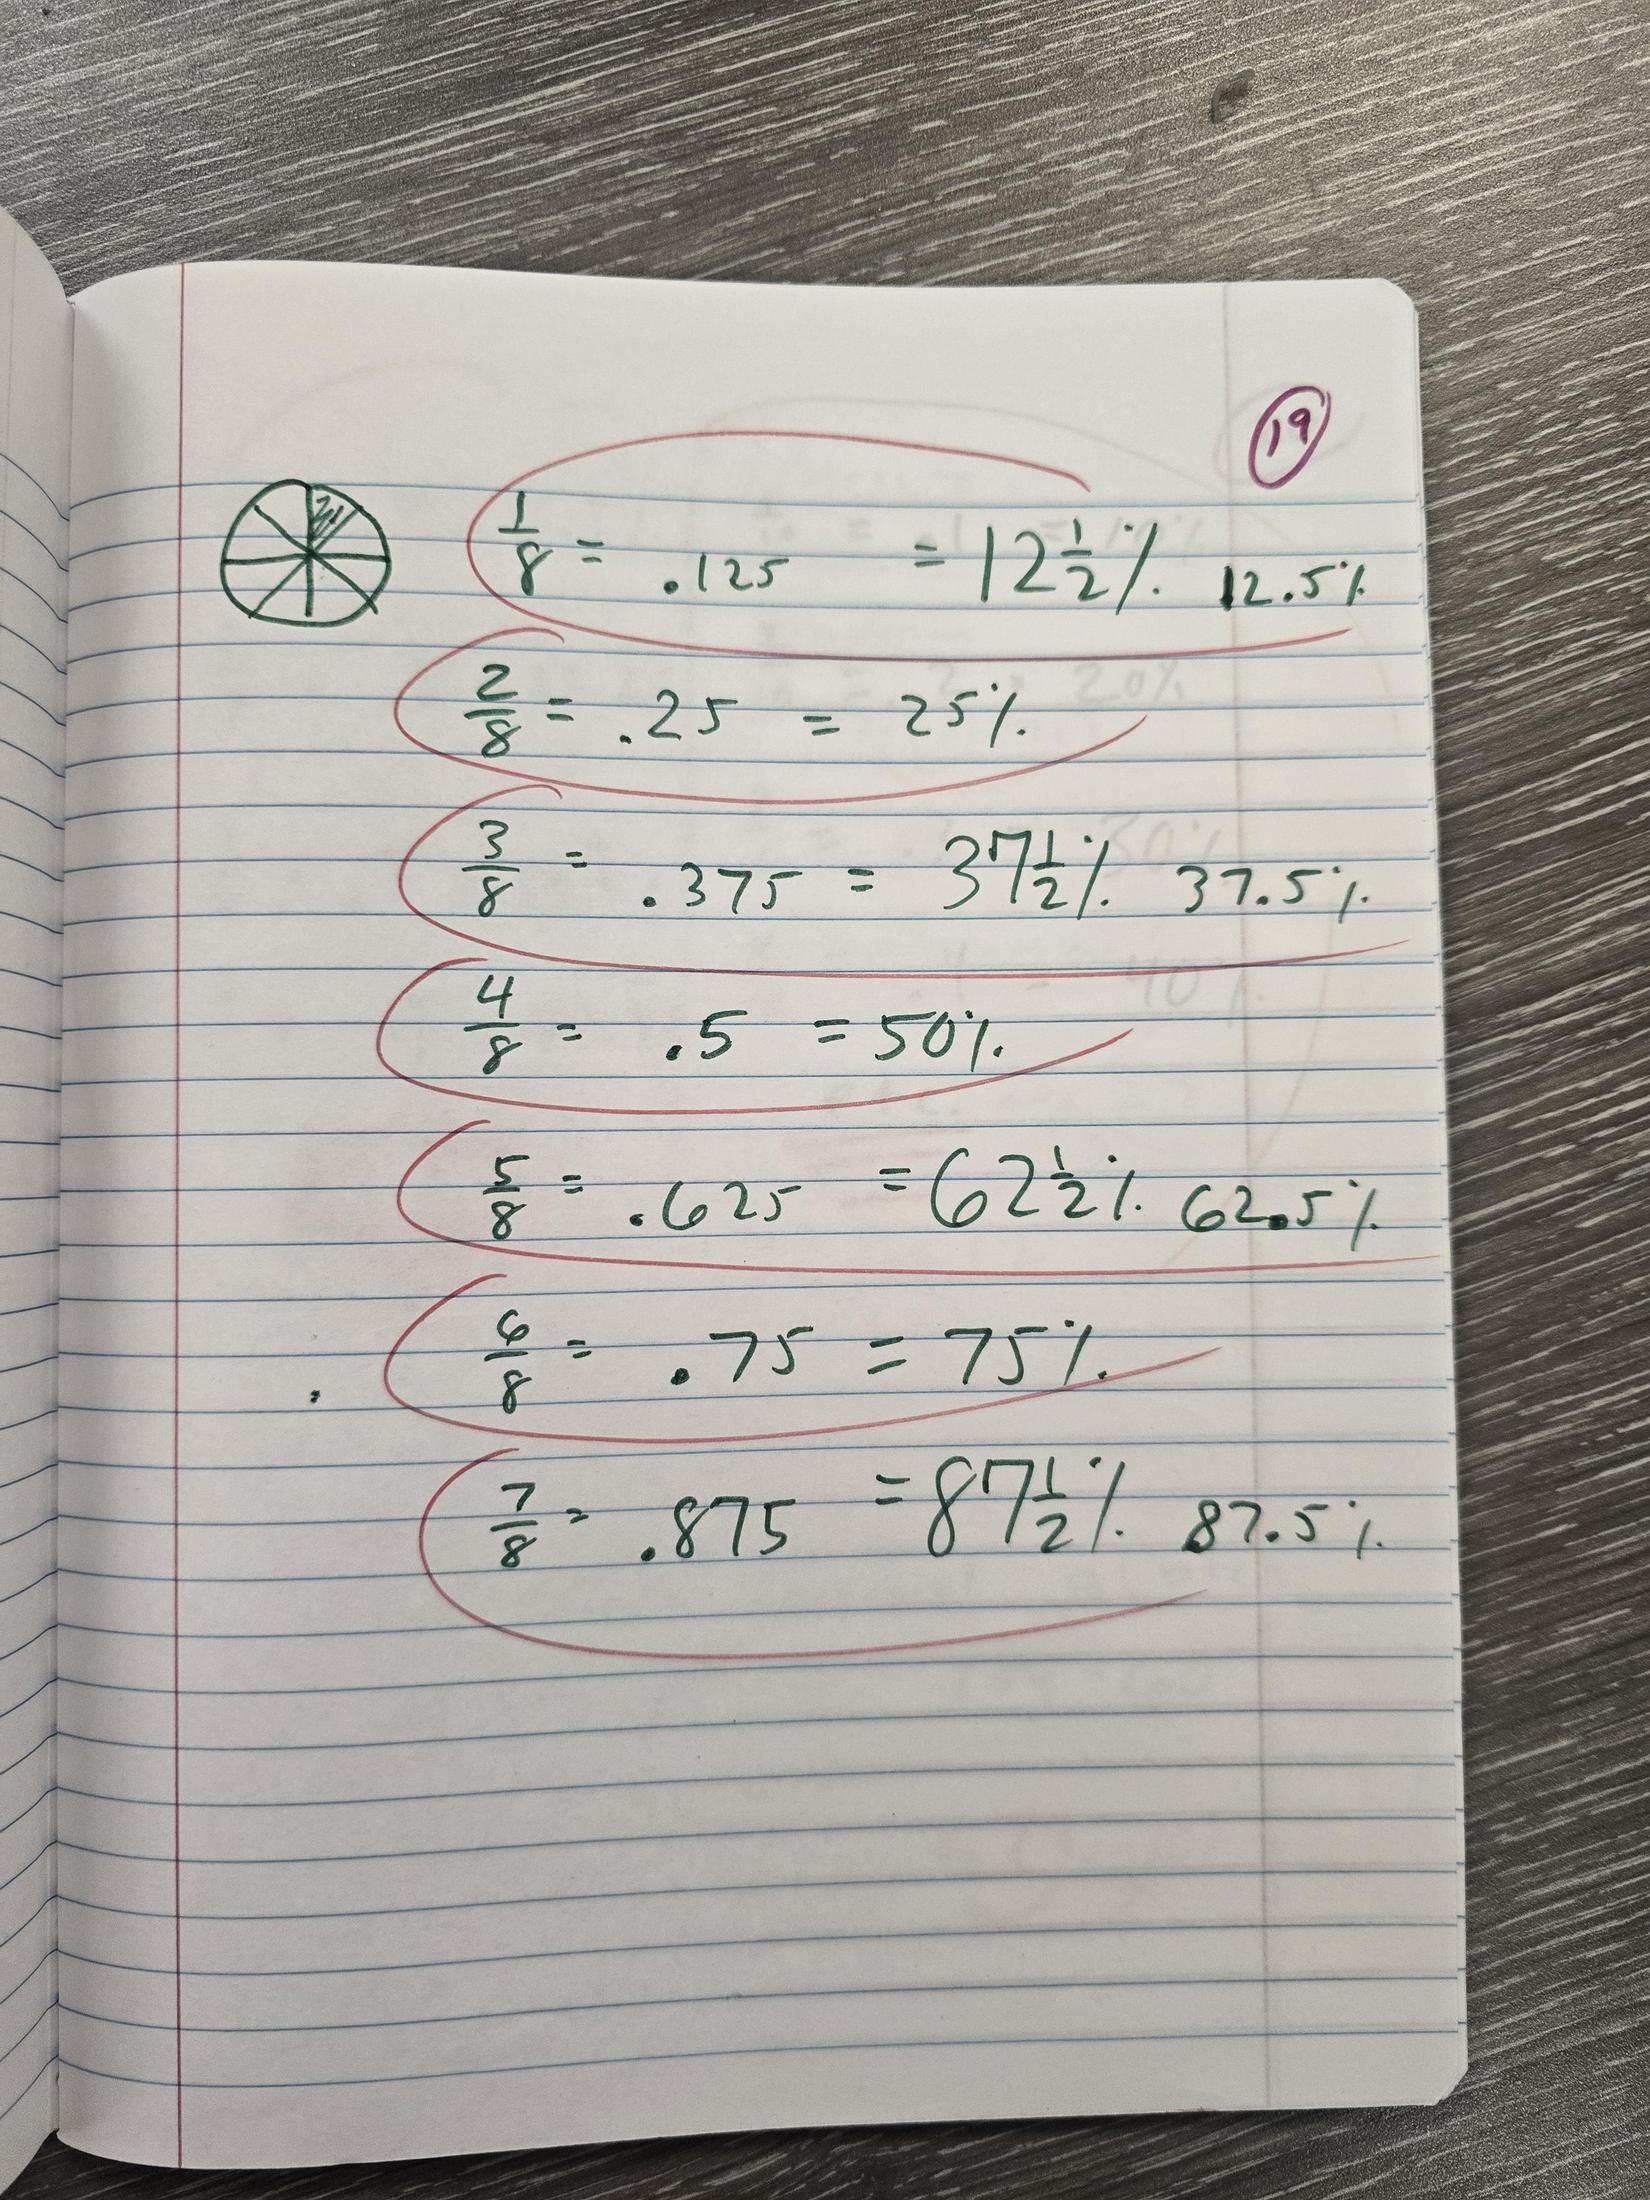 19
1/8 = .125 = 12 1/2 % 12.5%
2/8 = .25 = 25%
3/8 = .375 = 37 1/2 % 37.5%
4/8 = .5 = 50%
5/8 = .625 = 62 1/2 % 62.5%
6/8 = .75 = 75%
7/8 = .875 = 87 1/2 % 87.5%